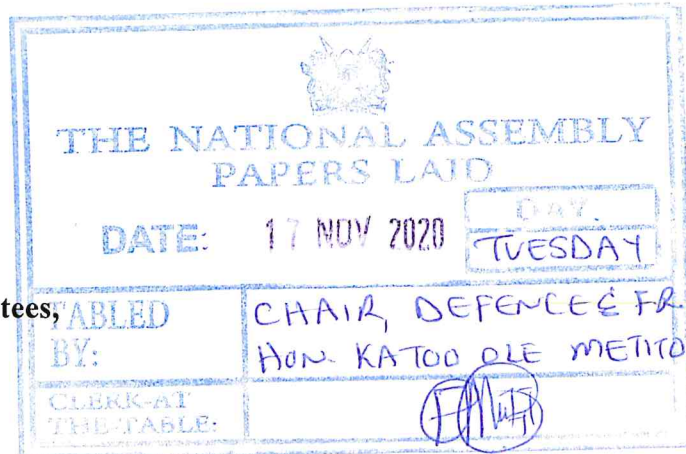 THE NATIONAL ASSEMBLY
PAPERS LAID
DATE: 17 NOV 2020
DAY.
TUESDAY
tees,
TABLED BY:
CHAIR, DEFENCE & FR
HON. KATOO OLE METITO
CLERK-AT THE-TABLE: